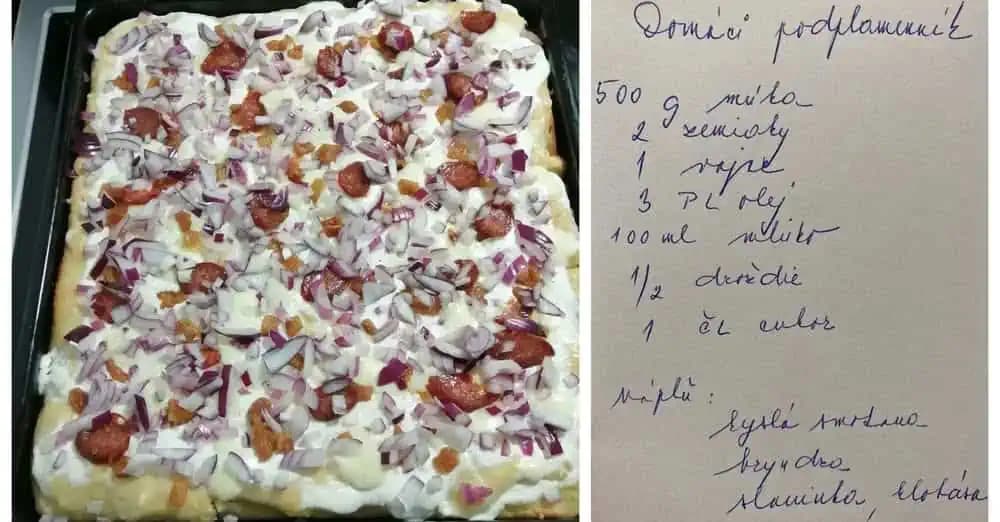 Domáci podplamenník
500 g múka
2 zemiaky
1 vajce
3 PL olej
100 ml mlieko
1/2 droždie
1 ČL cukor
náplň:
kyslá smotana
bryndza
slaninka, klobása